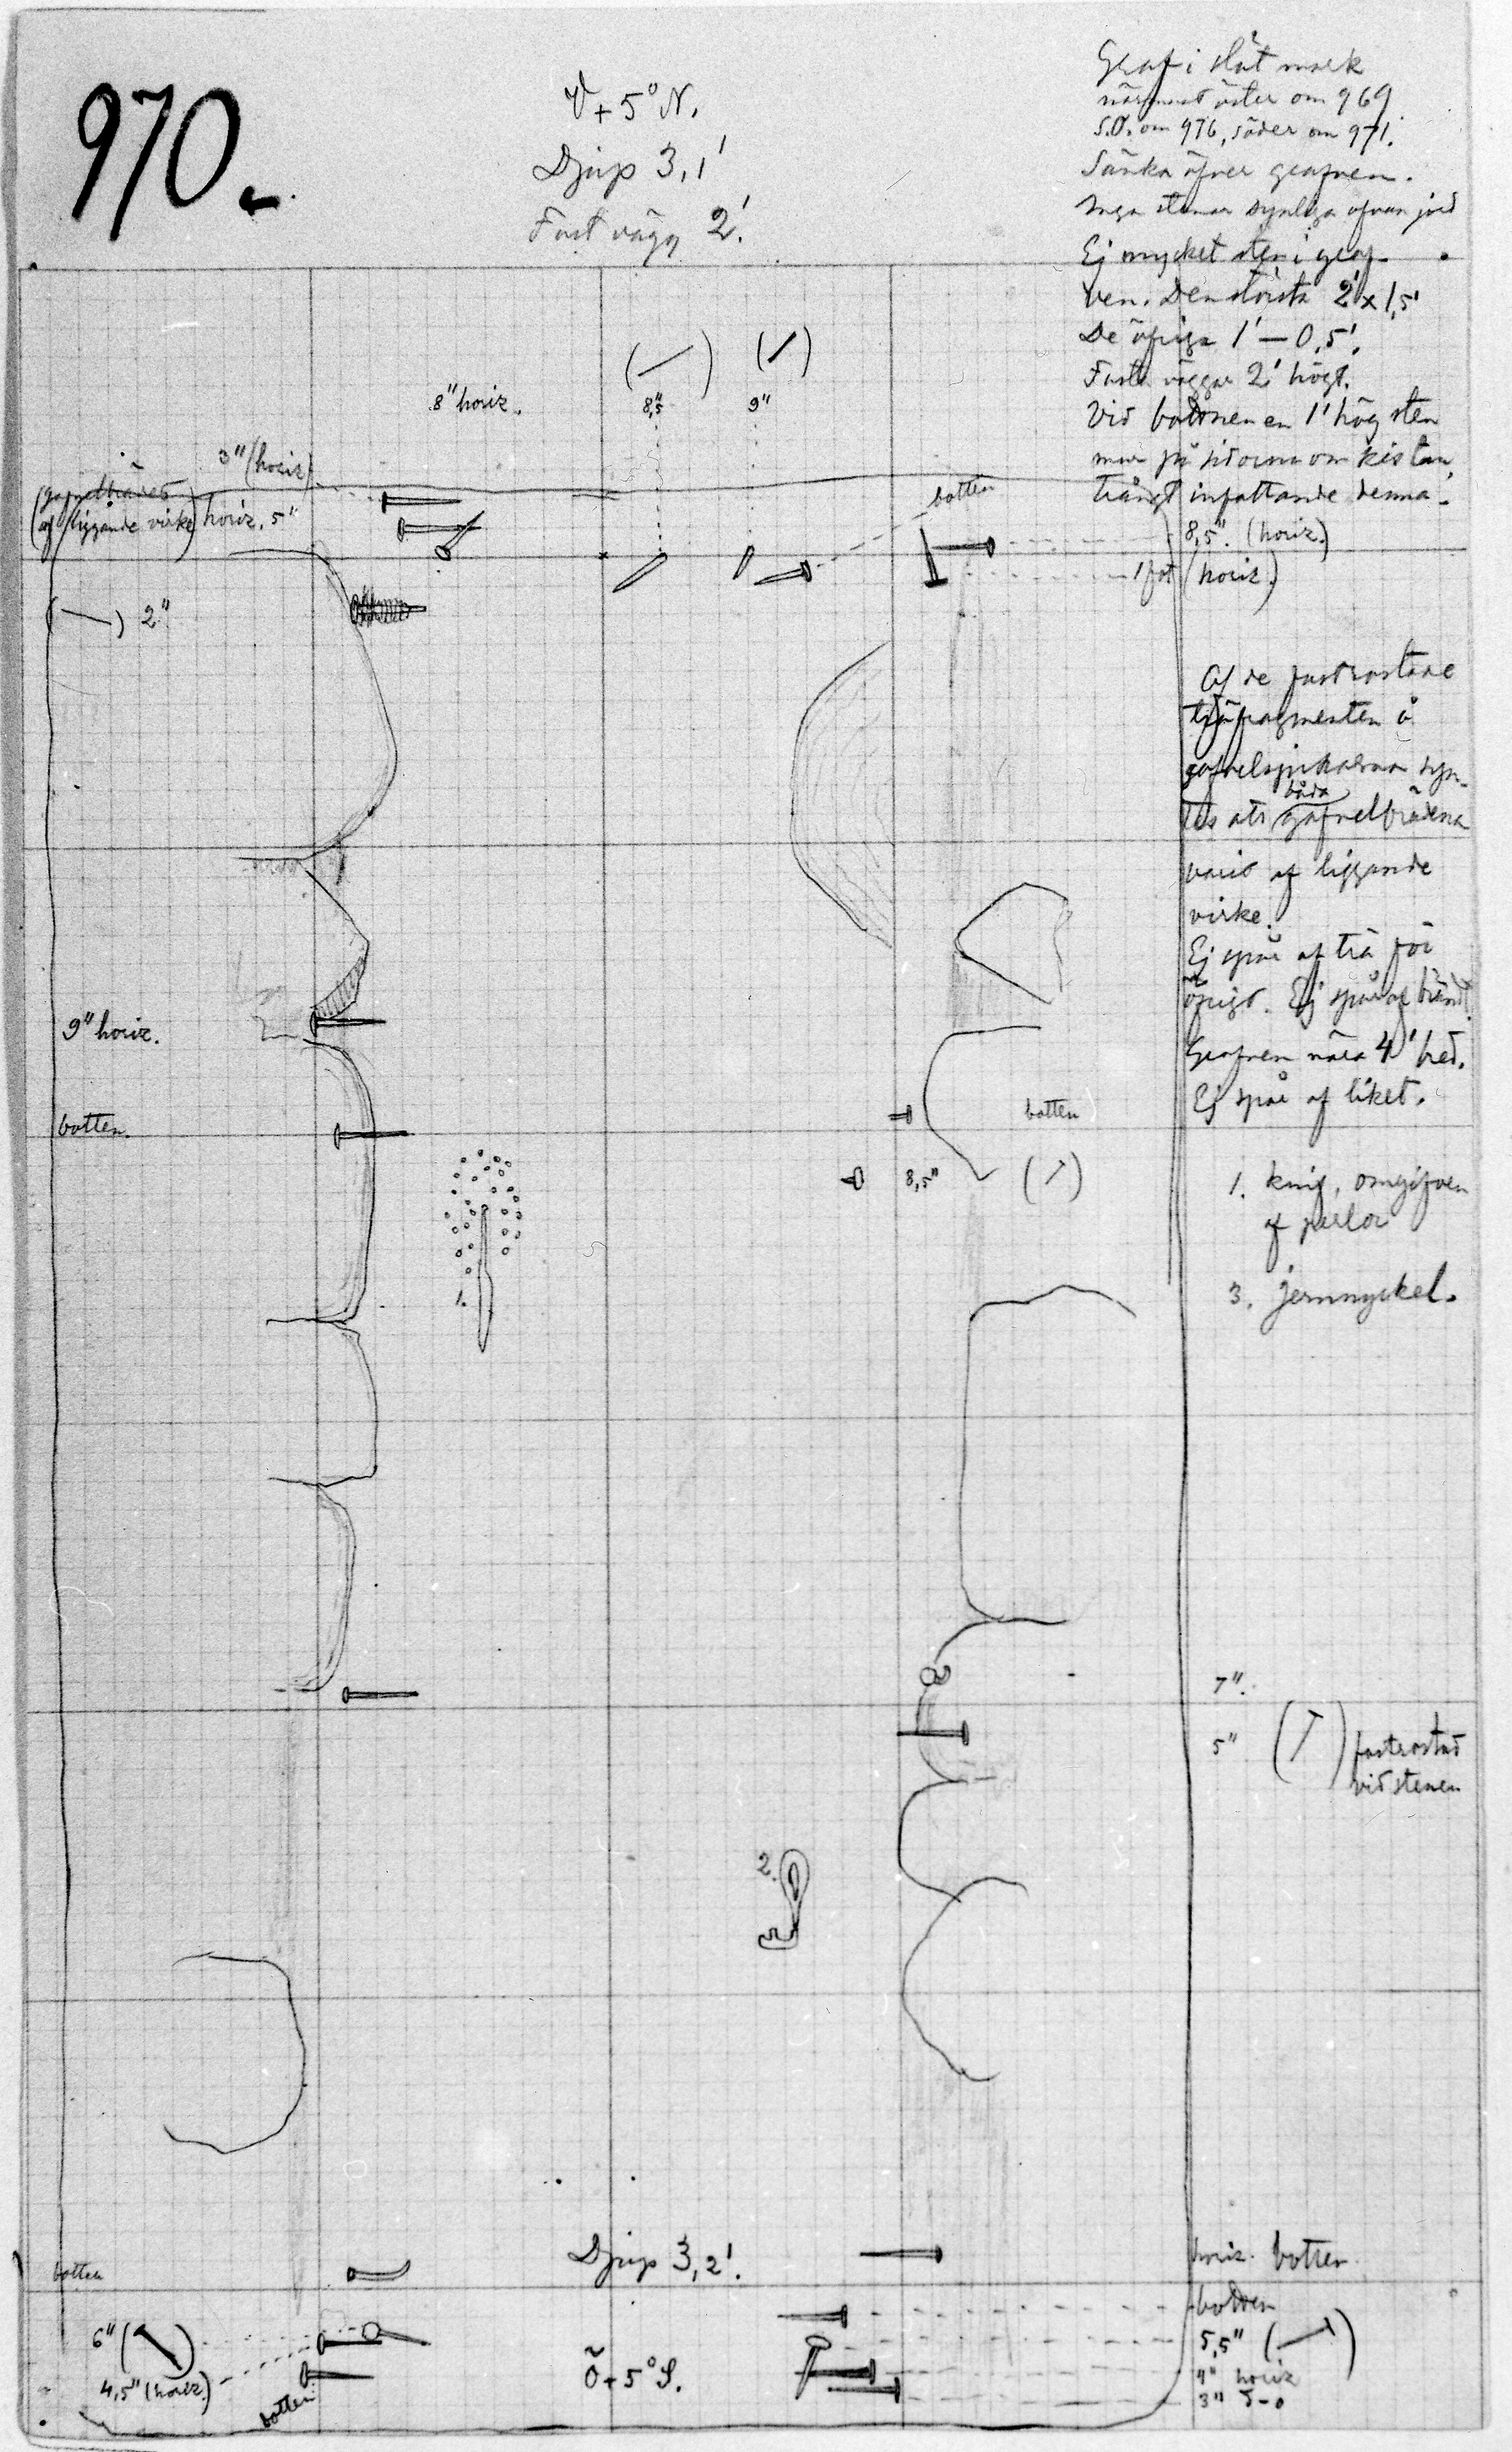 970.
V + 5° N.
Djup 3,1'
Fast vägg 2'.
Graf i slät mark
närmast öster om 969
S.O. om 976, söder om 971.
Sänka öfver grafven.
Inga stenar synliga ofvan jord
Ej mycket sten i graf-
ven. Den största 2' x 1,5'
De öfriga 1' — 0,5'.
Fasta väggar 2' högt.
Vid bottnen en 1' hög sten
mur på sidorna om kistan
trångt infattande denna.
8" horiz.
8,5"
9"
3" (horiz)
(gafvelbrädet
af liggande virke)
horiz. 5"
botten
8,5". (horiz.)
1 fot (horiz.)
2".
Af de fastrostade
träfragmenten å
gafvelspikarna syn-
tes att båda gafvelbrädena
varit af liggande
virke.
Ej spår af trä för
öfrigt. Ej spår af bränd
Grafven nära 4' bred.
Ej spår af liket.
9" horiz.
botten.
botten
8,5"
1. knif, omgifven
af perlor
3. jernnyckel.
1.
7".
5"
fastrostad
vid stenen
2.
3
botten
Djup 3,2'.
horiz. botten
6"
4,5" (horiz.)
botten
Ö + 5° S.
botten
5,5"
4" horiz
3"